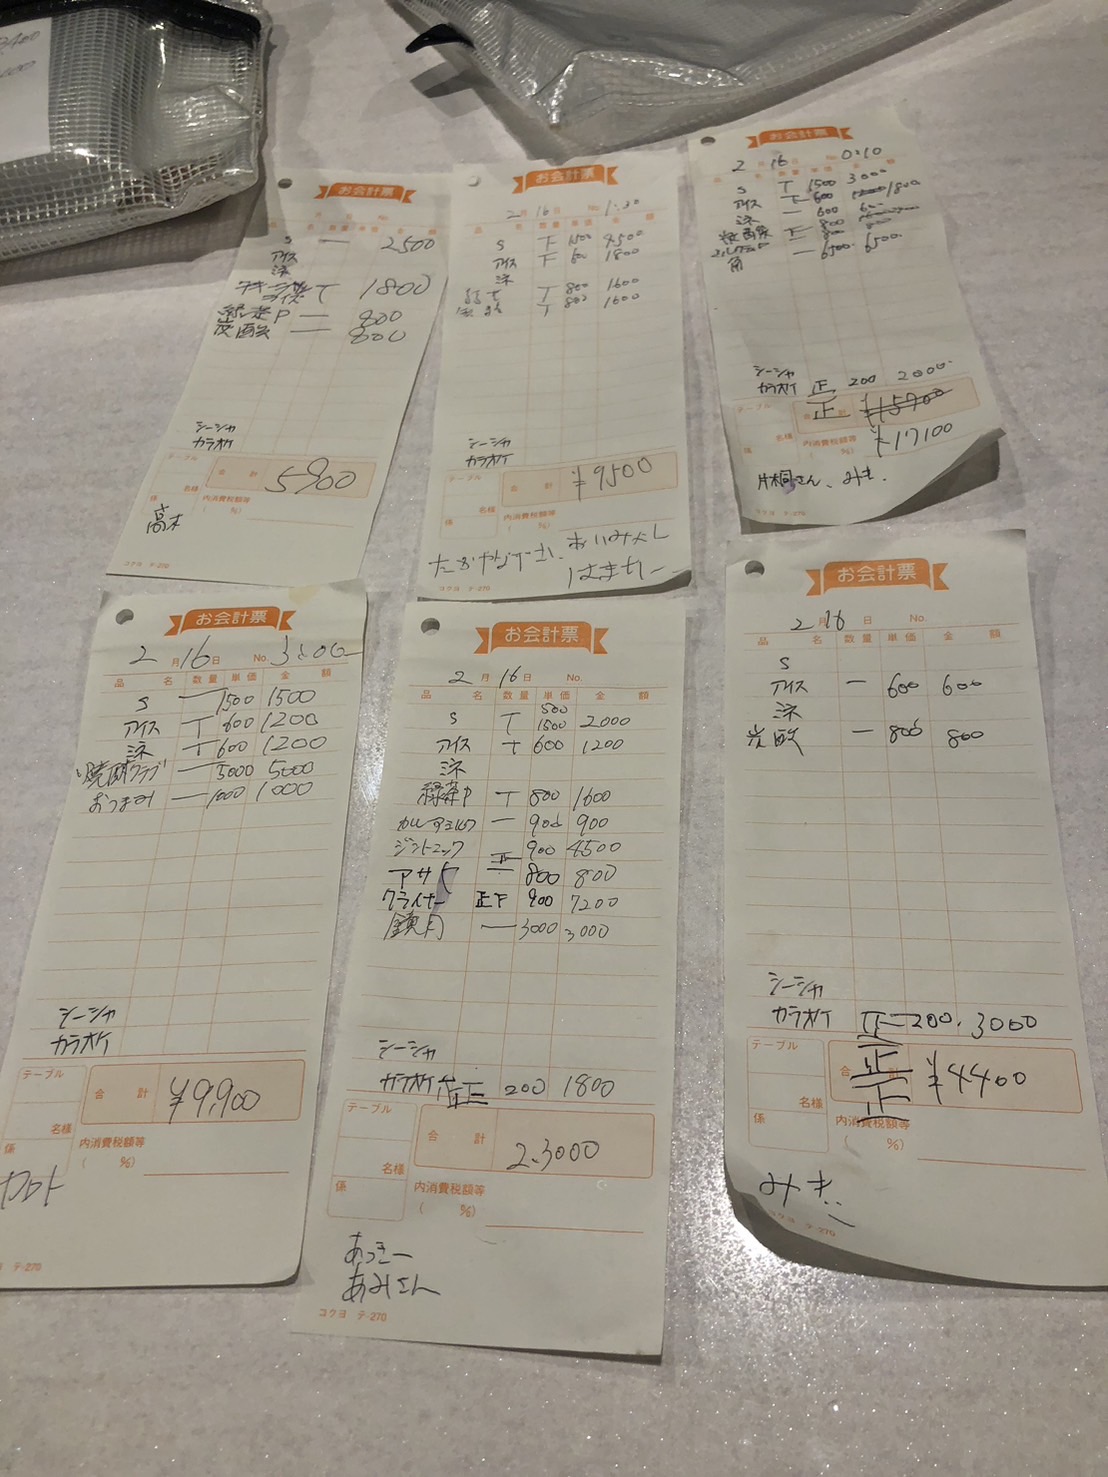 お会計票
月 日 No.
品 名 数量 単価 金 額
S 一 2500
アイス
涼
T 1800
緑茶P 一 800
炭酸 一 800
シーシャ
カラオケ
テーブル
合 計 5900
名様
係
内消費税額等
( %)
高木
コクヨ テ-270
お会計票
2月16日 No. 1:30
品 名 数量 単価 金 額
S 下 1500 4500
アイス 下 600 1800
涼
T 800 1600
T 800 1600
シーシャ
カラオケ
テーブル
合 計 ¥9,500
名様
係
内消費税額等
( %)
コクヨ テ-270
お会計票
2月16日 No. 0:10
品 名 数量 単価 金 額
S T 1500 3000
アイス 下 600 1800
涼 一 600 600
角 一 6500 6500
シーシャ
カラオケ 正正 200 2000
テーブル
合 計 ¥15900
¥17100
名様
係
内消費税額等
( %)
片桐さん、みき.
コクヨ テ-270
お会計票
2月16日 No.
品 名 数量 単価 金 額
S 一 1500 1500
アイス T 600 1200
涼 T 600 1200
焼酎クラブ 一 5000 5000
おつまみ 一 1000 1000
シーシャ
カラオケ
テーブル
合 計 ¥9,900
名様
係
内消費税額等
( %)
カロト
テ-270
お会計票
2月16日 No.
品 名 数量 単価 金 額
500
S T 1500 2000
アイス T 600 1200
涼
緑茶P T 800 1600
一 900 900
ジントニック 正 900 4500
アサヒ 一 800 800
クライナー 正下 900 7200
鏡月 一 3000 3000
シーシャ
カラオケ 200 1800
テーブル
合 計 2.3000
名様
係
内消費税額等
( %)
あっきー
あみさん
コクヨ テ-270
お会計票
2月16日 No.
品 名 数量 単価 金 額
S
アイス 一 600 600
涼
炭酸 一 800 800
シーシャ
カラオケ 正正正 200. 3000
テーブル
合 計 ¥4400
名様
係
内消費税額等
( %)
みき
コクヨ テ-270